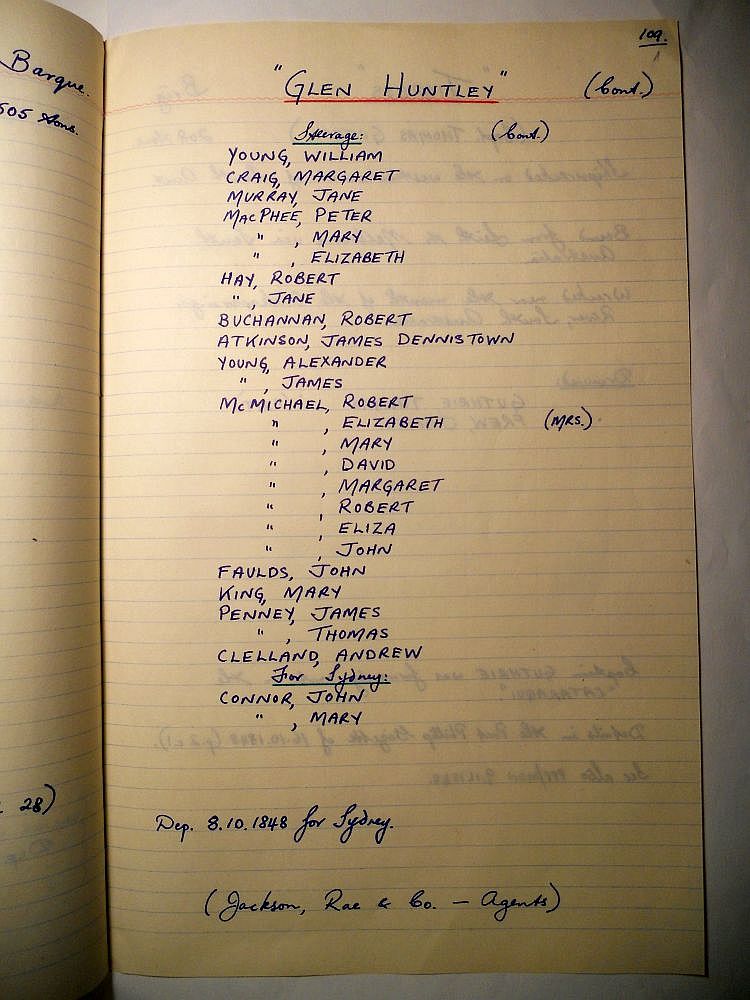 Barque.
505 Tons.
28)
109.
"GLEN HUNTLEY" (Cont.)
Steerage: (Cont.)
YOUNG, WILLIAM
CRAIG, MARGARET
MURRAY, JANE
MACPHEE, PETER
" , MARY
" , ELIZABETH
HAY, ROBERT
" , JANE
BUCHANNAN, ROBERT
ATKINSON, JAMES DENNISTOWN
YOUNG, ALEXANDER
" , JAMES
McMICHAEL, ROBERT
" , ELIZABETH (MRS.)
" , MARY
" , DAVID
" , MARGARET
" , ROBERT
" , ELIZA
" , JOHN
FAULDS, JOHN
KING, MARY
PENNEY, JAMES
" , THOMAS
CLELLAND, ANDREW
For Sydney:
CONNOR, JOHN
" , MARY
Dep. 8.10.1848 for Sydney.
(Jackson, Rae & Co. — Agents)